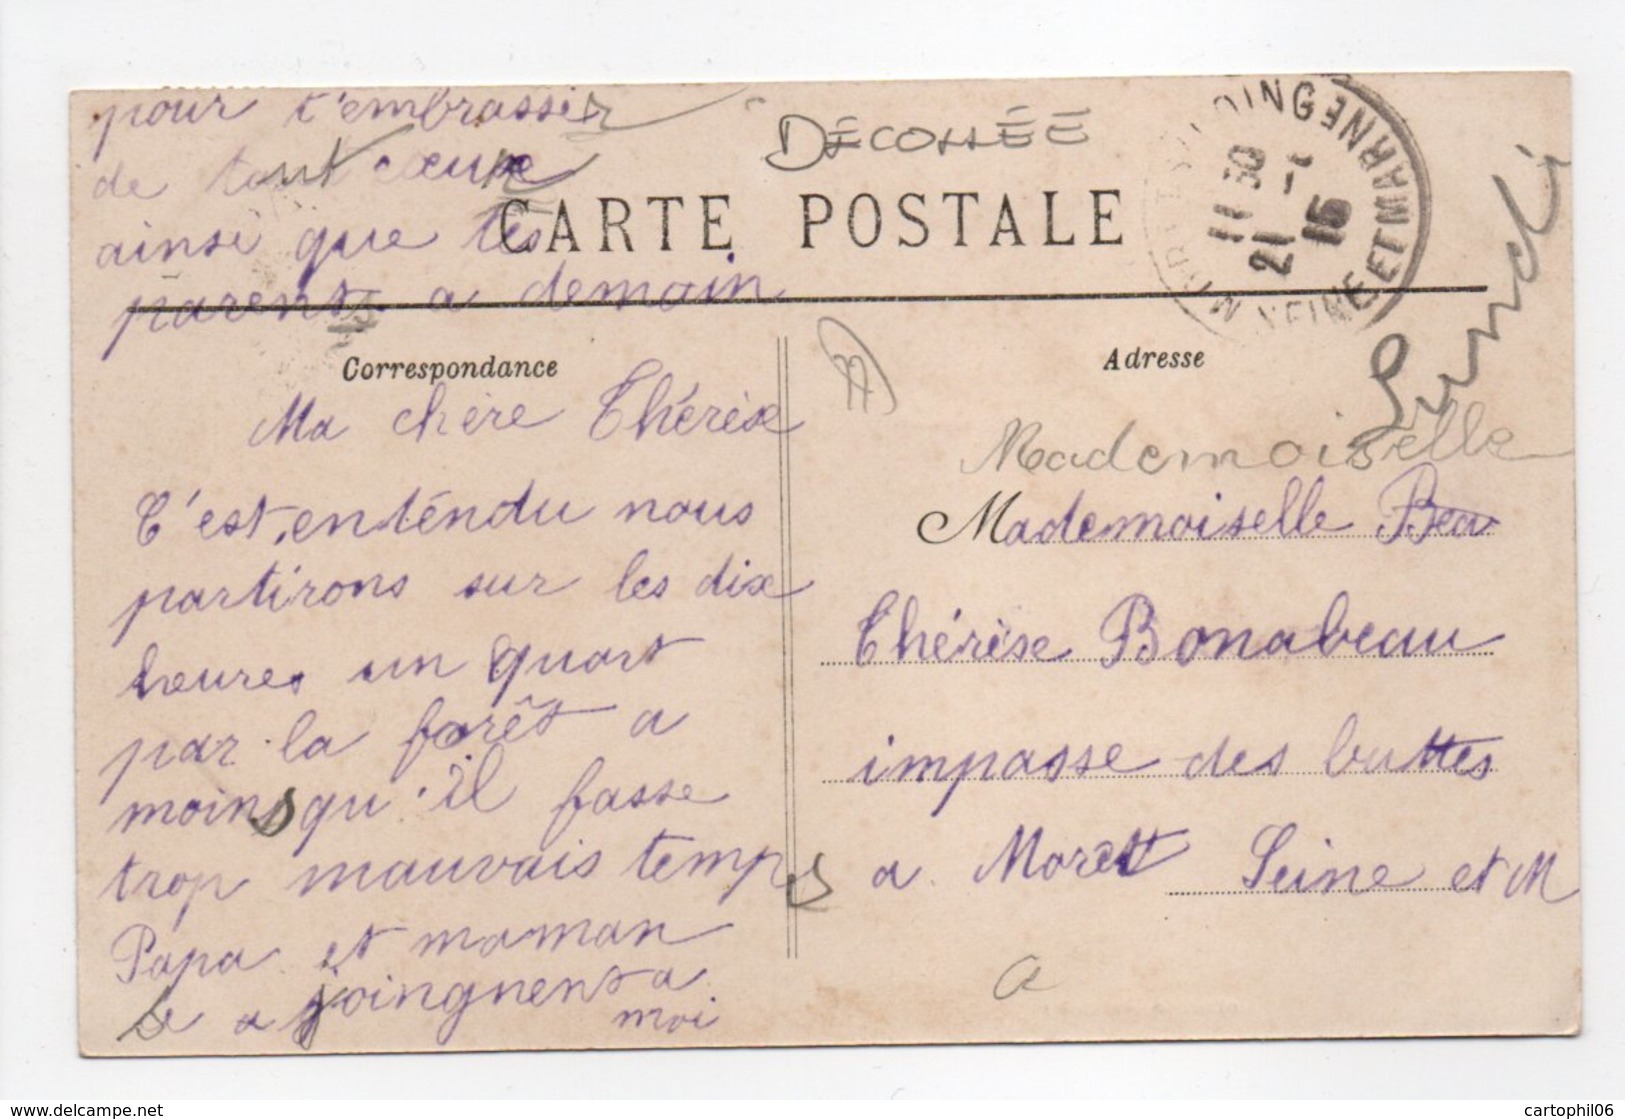 pour t'embrasser
de tout cœur
ainsi que tes
parents a demain
DÉCOLLÉE
CARTE POSTALE
11 30
21 - 1
15
SEINE ET MARNE
Lundi
Correspondance
Adresse
Ma chère Thérèse
C'est enténdu nous
partirons sur les dix
heures un quart
par la forêt a
moins qu'il fasse
trop mauvais temps
Papa et maman
se a joingnent a
moi
Mademoiselle
Mademoiselle Bea
Thérèse Bonabeau
impasse des buttes
a Moret Seine et M
a
delcampe.net
cartophil06